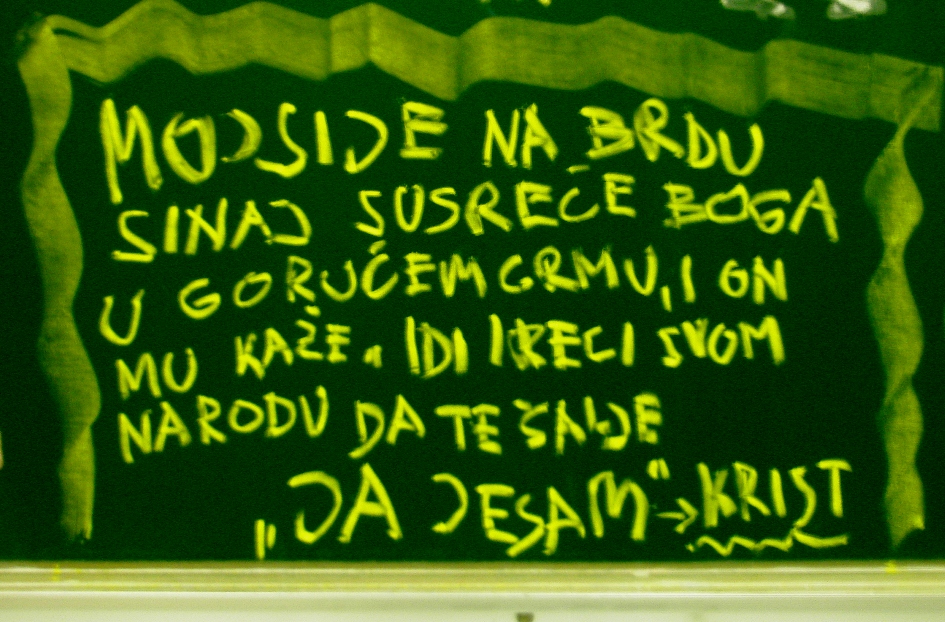 MOJSIJE NA BRDU
SINAJ SUSREĆE BOGA
U GORUĆEM GRMU, I ON
MU KAŽE. IDI I RECI SVOM
NARODU DA TE ŠALJE
„JA JESAM" → KRIST